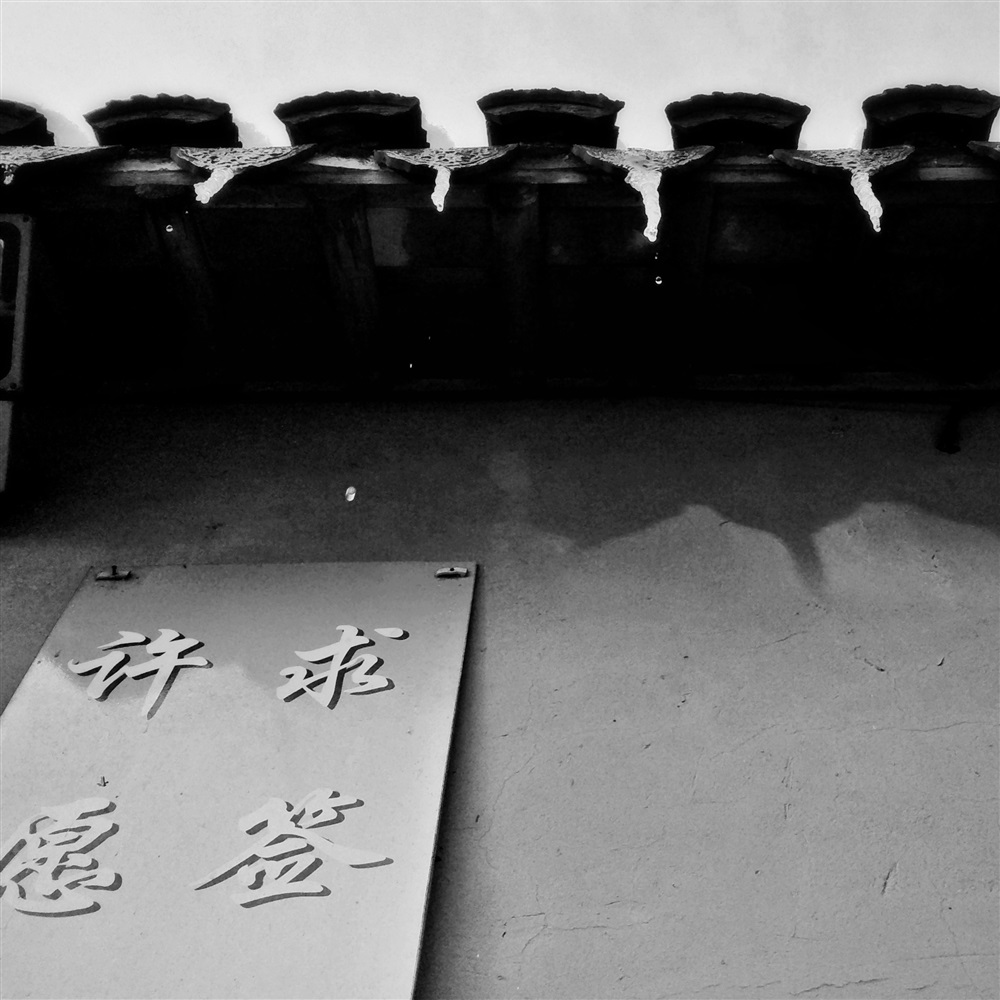 求签
许愿